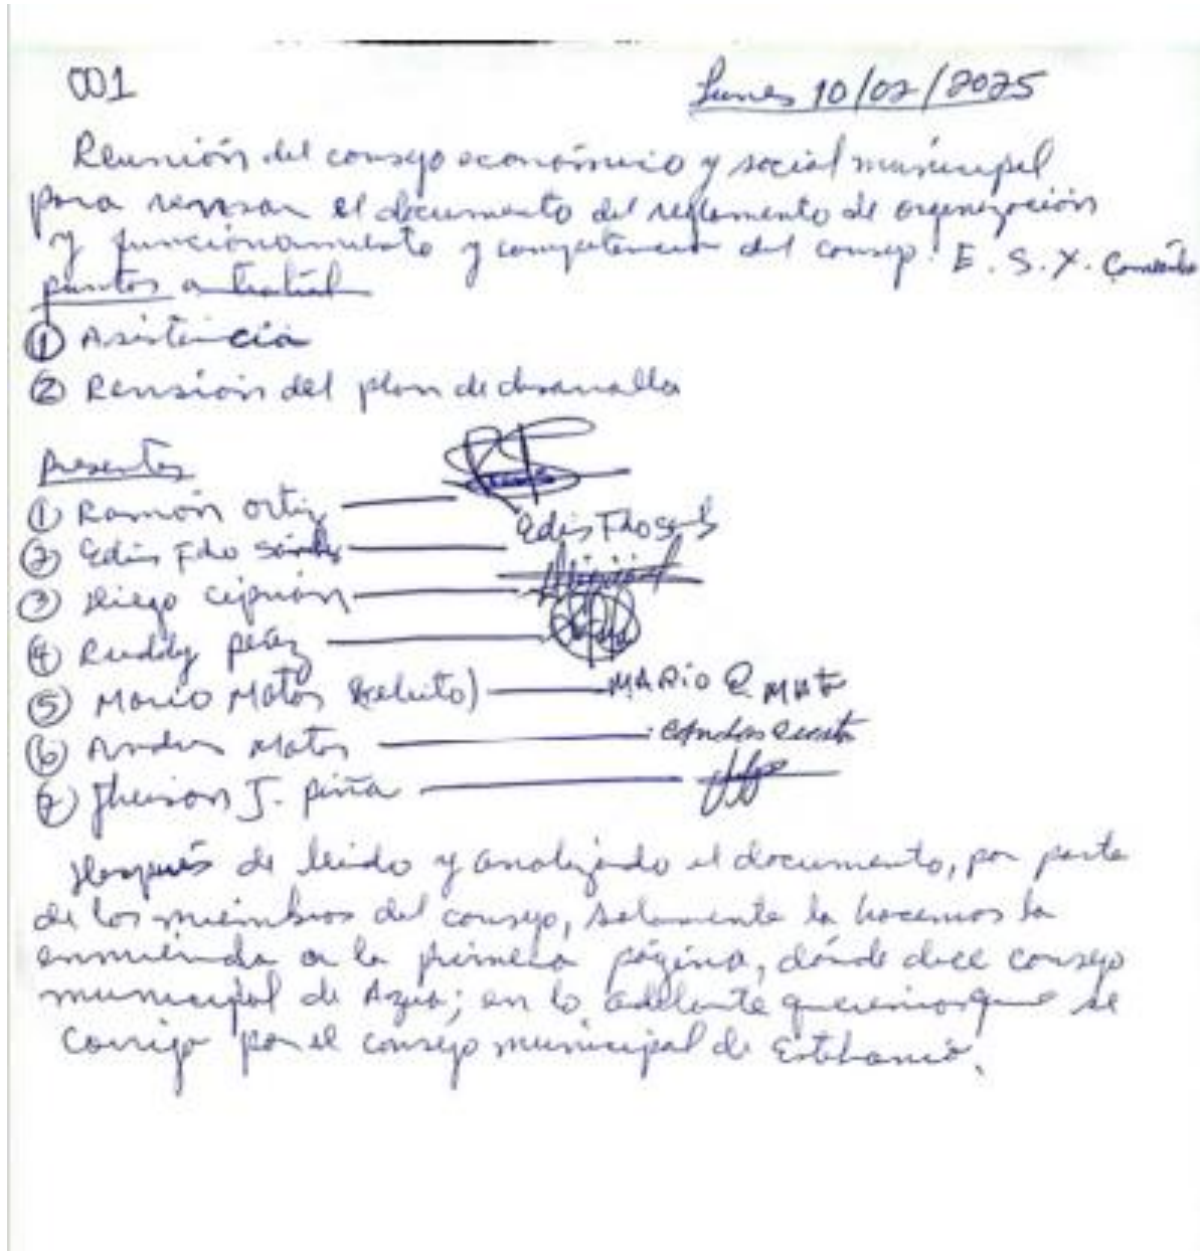 001
Lunes 10/02/2025
Reunión del consejo económico y social municipal
para revisar el documento del reglamento de organización
y funcionamiento y competencia del consejo. E. S. Y.
puntos a tratar
① Asistencia
② Revisión del plan de desarrollo
Presentes
① Ramón Ortiz
② Edis Fdo Sánchez
Edis Fdo
③ Diego Ciprián
④ Ruddy Pérez
⑤ Mario Matos
MARIO E MAT
⑥ Andres Matos
⑦ Jheison J. Piña
Después de leido y analizado el documento, por parte
de los miembros del consejo, solamente la hacemos la
enmienda a la primera página, dónde dice consejo
municipal de Azua; en lo adelante queremos que se
corrija por el consejo municipal de Estebanía.